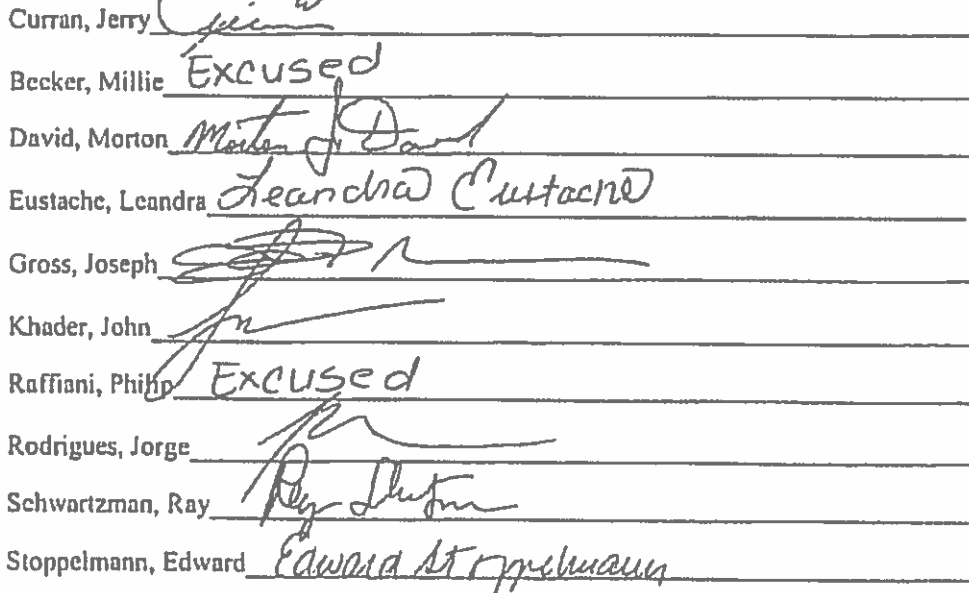 Curran, Jerry
Becker, Millie Excused
David, Morton Morton J David
Eustache, Leandra Leandra Eustache
Gross, Joseph
Khader, John
Raffiani, Philip Excused
Rodrigues, Jorge
Schwartzman, Ray Ray
Stoppelmann, Edward Edward Stoppelmann